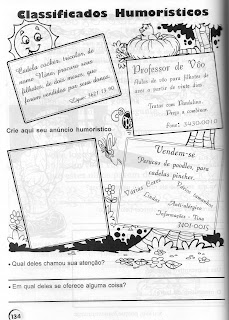 Classificados Humorísticos
Cadela cocker, tricolor, de
nome Nina, procura seus
filhotes, de dois meses, que
foram vendidos por seus donos.
Ligar: 7421-13-90
Professor de Vôo
Aulas de vôo para filhotes de
aves a partir de vinte dias
Tratar com Pardalino.
Preço à combinar.
Fone: 3430-0010
Crie aqui seu anúncio humorístico
Vendem-se
Perucas de poodles, para
cadelas pincher.
Várias Cores
Vários tamanhos
Lindas
Anti-alérgico
Informações - Tino
7401-0015
• Qual deles chamou sua atenção?
• Em qual deles se oferece alguma coisa?
134